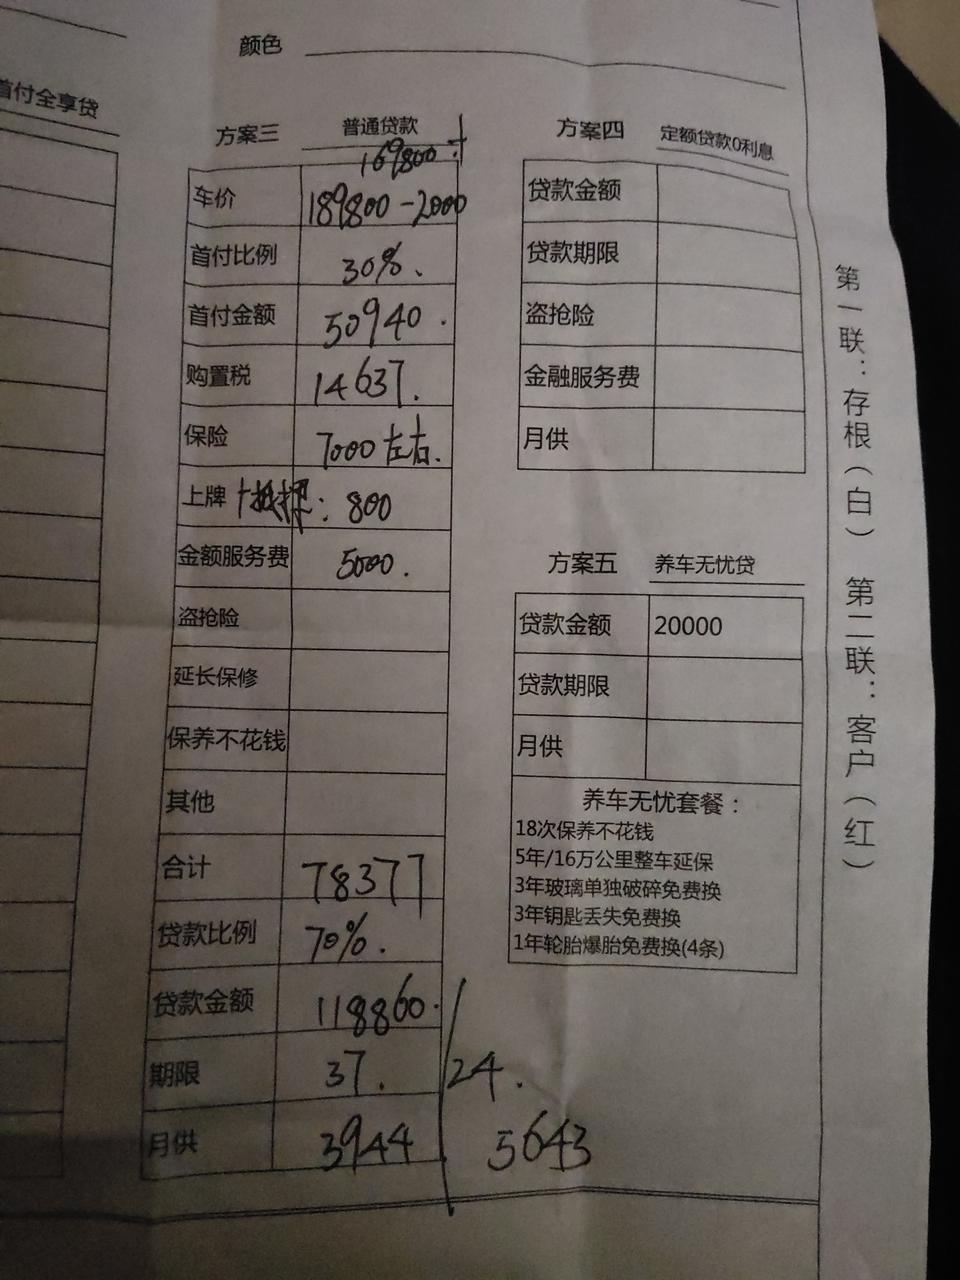 颜色
首付全享贷
方案三 普通贷款
169800
车价 189800-2000
首付比例 30%.
首付金额 50940.
购置税 14637.
保险 7000左右.
上牌+抵押: 800
金额服务费 5000.
盗抢险
延长保修
保养不花钱
其他
合计 78377
贷款比例 70%.
贷款金额 118860.
期限 37. 24.
月供 3944 5643
方案四 定额贷款0利息
贷款金额
贷款期限
盗抢险
金融服务费
月供
方案五 养车无忧贷
贷款金额 20000
贷款期限
月供
养车无忧套餐:
18次保养不花钱
5年/16万公里整车延保
3年玻璃单独破碎免费换
3年钥匙丢失免费换
1年轮胎爆胎免费换(4条)
第一联:存根(白) 第二联:客户(红)